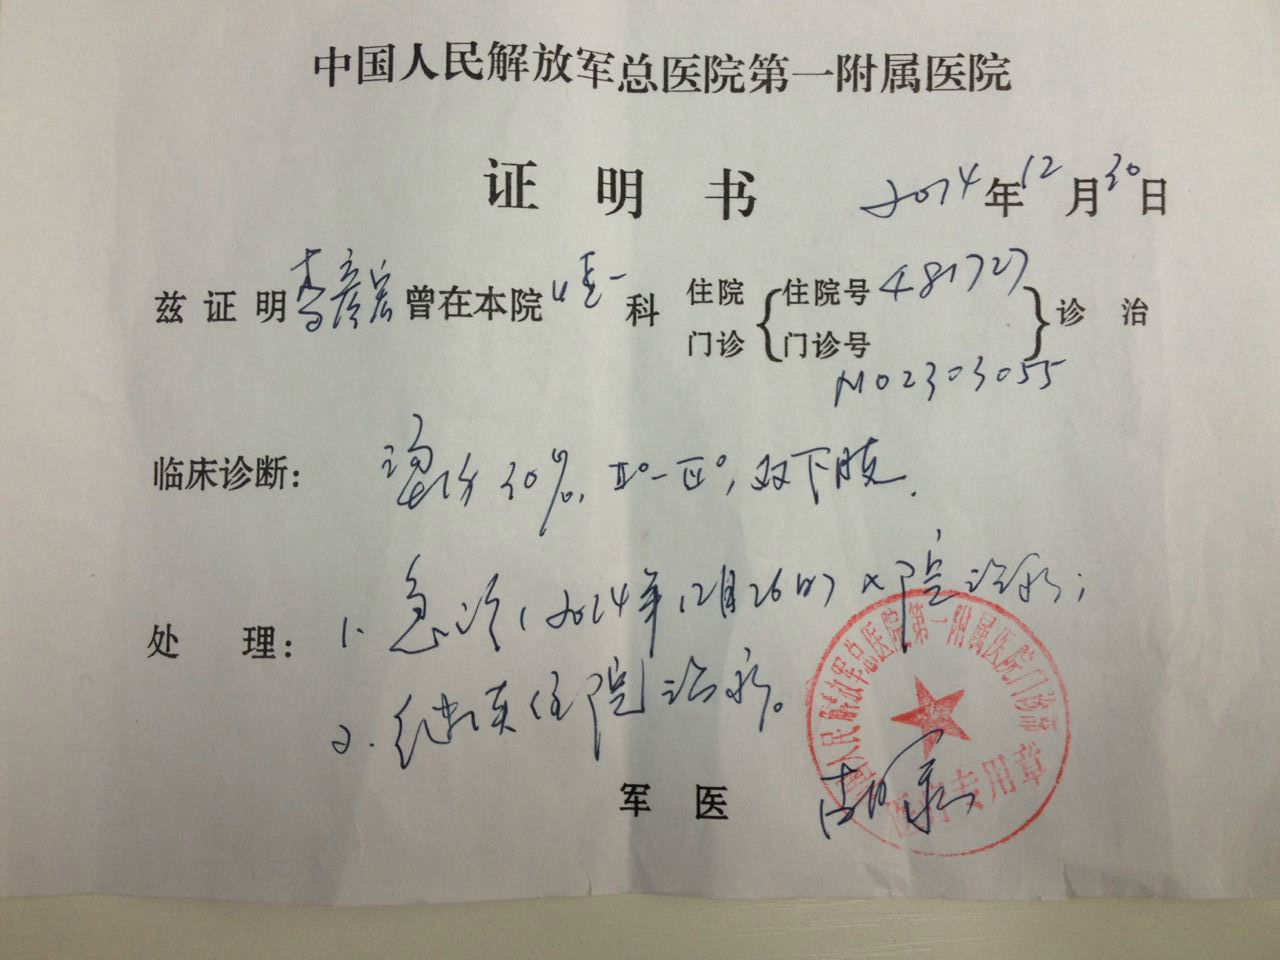 中国人民解放军总医院第一附属医院
证明书 2014年12月30日
兹证明 彦宏曾在本院 一科 住院 门诊 { 住院号 481727 门诊号 M02303055 } 诊治
临床诊断: 烫伤30%, Ⅱ°-Ⅲ°, 双下肢.
处理: 1. 急诊(2014年12月26日)入院治疗;
2. 继续住院治疗。
军医
中国人民解放军总医院第一附属医院门诊部
医疗专用章